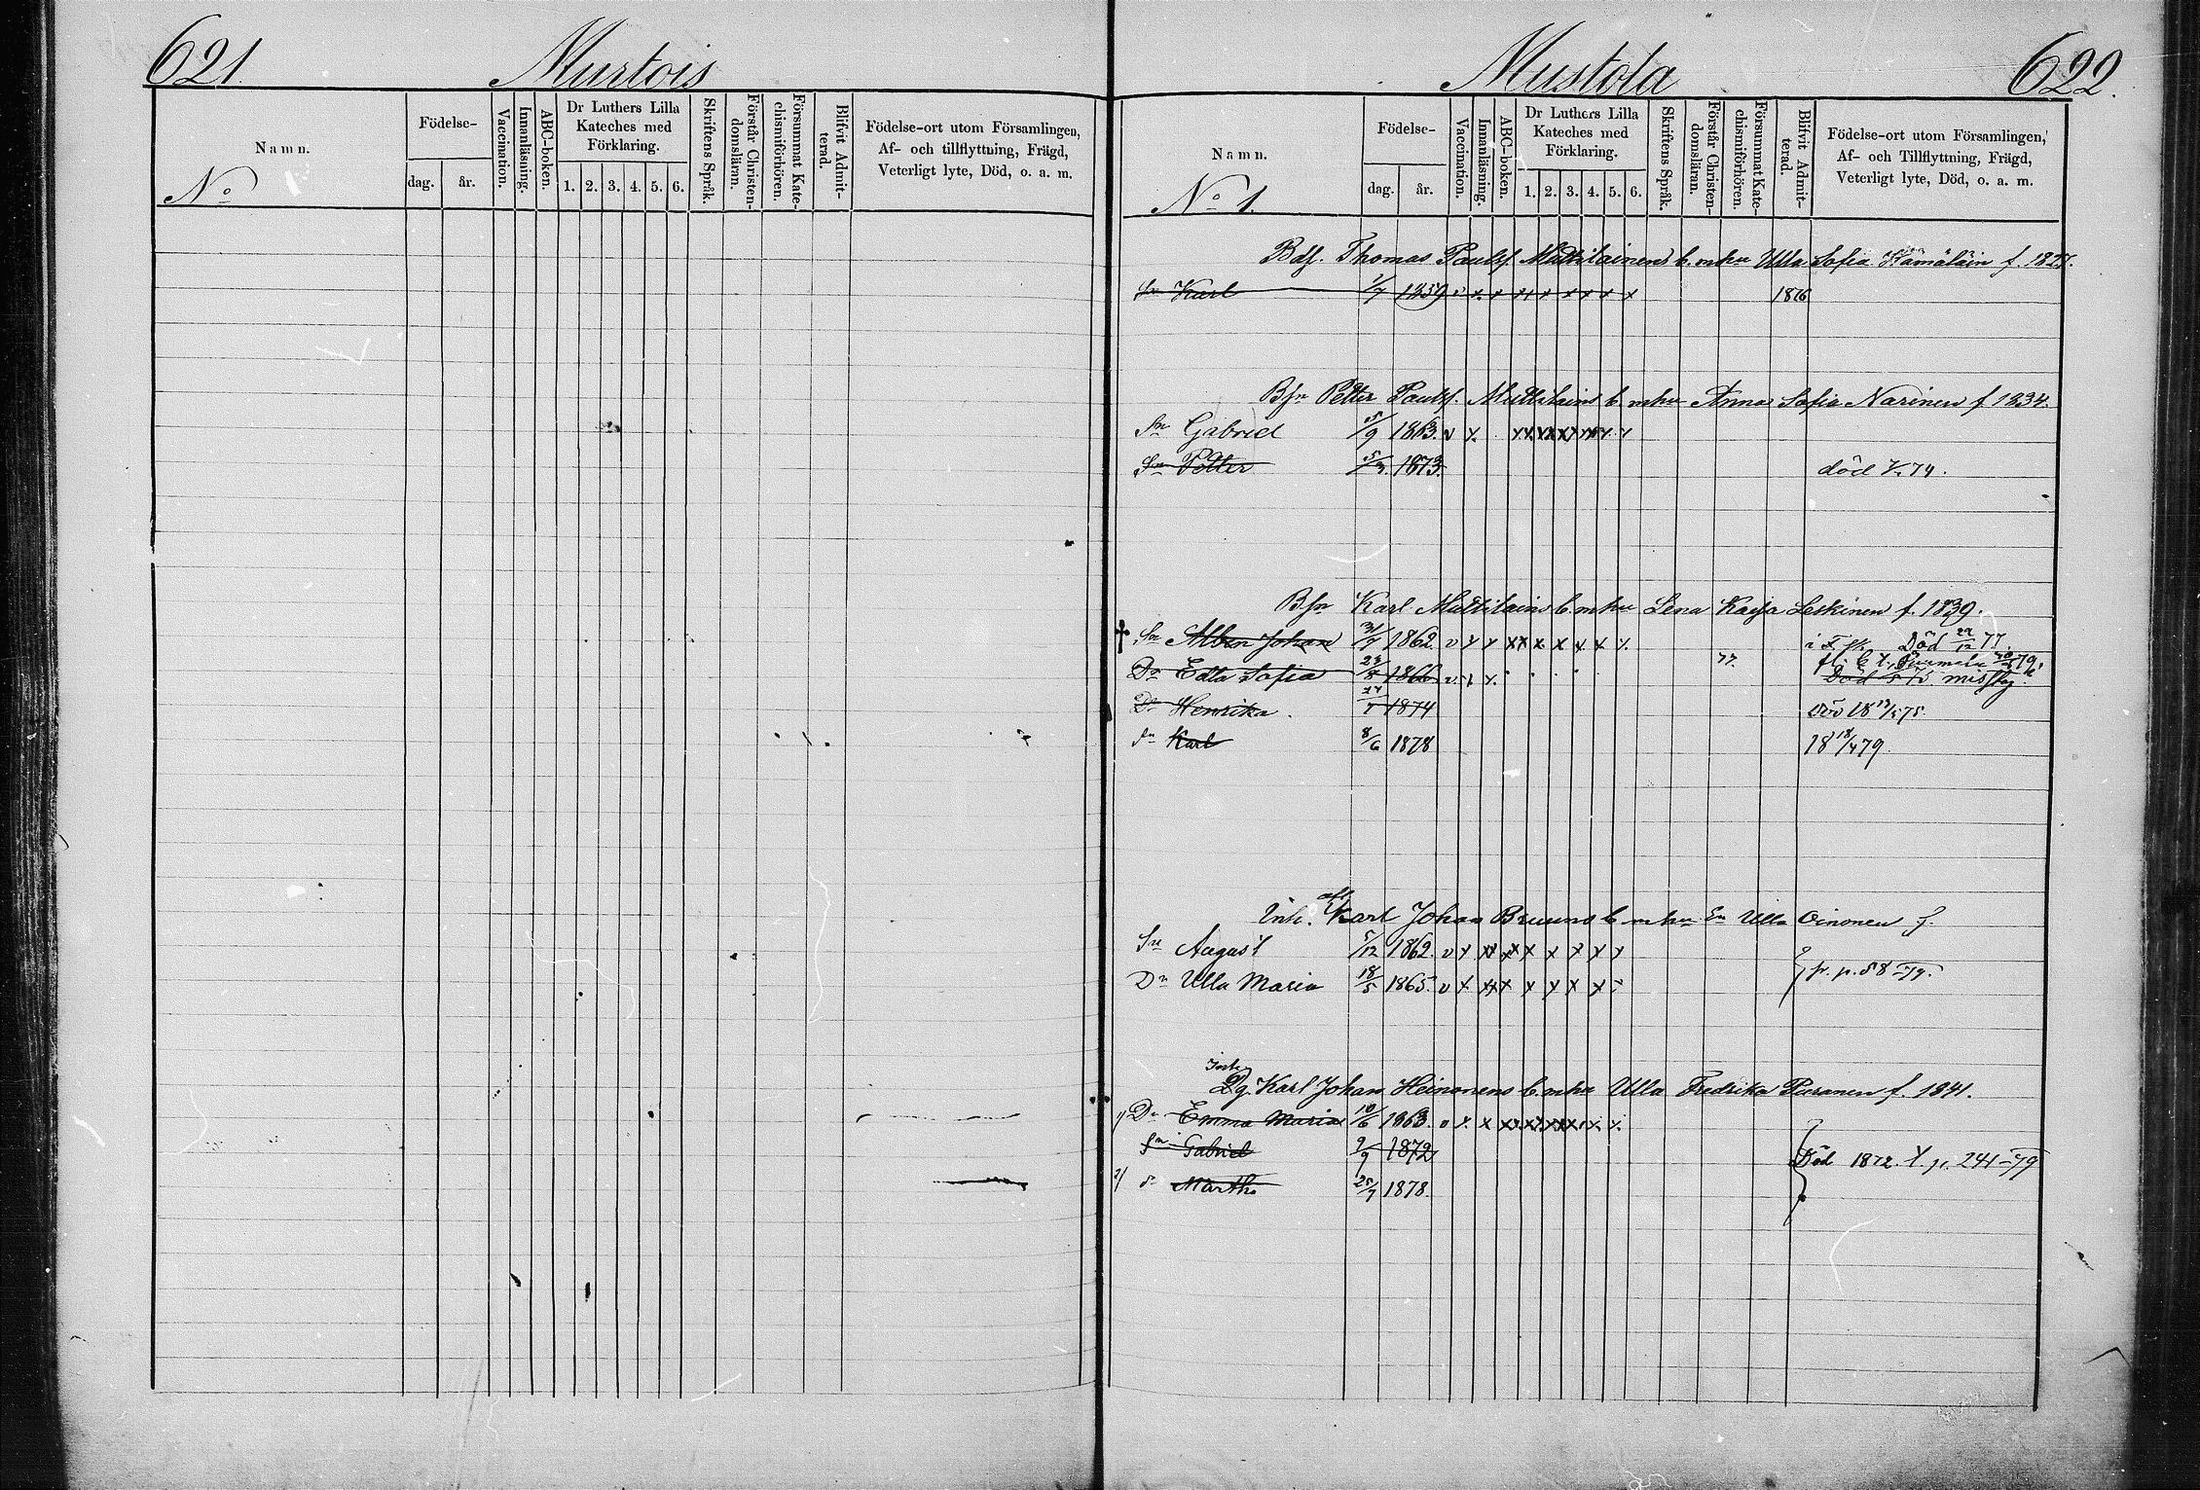 621. Murtois
Namn. Födelse- dag. år. Vaccination. Innanläsning. ABC-boken. Dr Luthers Lilla Kateches med Förklaring. 1. 2. 3. 4. 5. 6. Skriftens Språk. Förstår Christen-domsläran. Försummat Kate-chismiförhören. Blifvit Admit-terad. Födelse-ort utom Församlingen, Af- och tillflyttning, Frägd, Veterligt lyte, Död, o. a. m.
No
Mustola 622.
Namn. Födelse- dag. år. Vaccination. Innanläsning. ABC-boken. Dr Luthers Lilla Kateches med Förklaring. 1. 2. 3. 4. 5. 6. Skriftens Språk. Förstår Christen-domsläran. Försummat Kate-chismiförhören. Blifvit Admit-terad. Födelse-ort utom Församlingen, Af- och Tillflyttning, Frägd, Veterligt lyte, Död, o. a. m.
No 1.
Thomas Paulsf. b. m hu Ulla Sofia Hämäläin f.
Sn Karl 1/7 1859 v x x x x x x x x
Bfn Petter Paulsf. b. m hu Anna Sofia Narinen f 1834.
Sn Gabriel 5/9 1863. v x
Sn Petter 1873. död
Bfn Karl b. m hu Lena Kaisa Leskinen f. 1839.
Sn Johan 31/7 1862. v x x xx x x x x x Död 22/12 77.
Dr Edla Sofia 1866 v
Dr Henrika 1874
Sn Karl 8/6 1878 18 18/4 79.
Inh. Karl Johan Bruuns b. m hu En Ulla Oinonen f.
Sn August 5/12 1862. v x xx xx x x x x x
Dr Ulla Maria 18/5 1865. v x xx x x x x x p. p. 58 -79.
Inh
Dg. Karl Johan Heinonens b. m hu Ulla Fredrika Puranen f. 1841.
1) Dr Emma Maria 10/6 1863. v x x
Sn Gabriel 9/9 1872 Död 1872. p. 241-79
2) d Martha 25/7 1878.